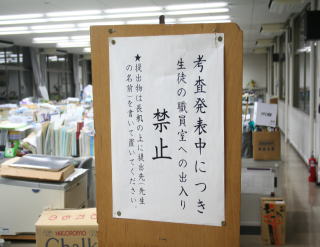 考査発表中につき
生徒の職員室への出入り
禁止
★提出物は長机の上に提出先（先生
の名前）を書いて置いてください。
HAGOROMO
Chalk